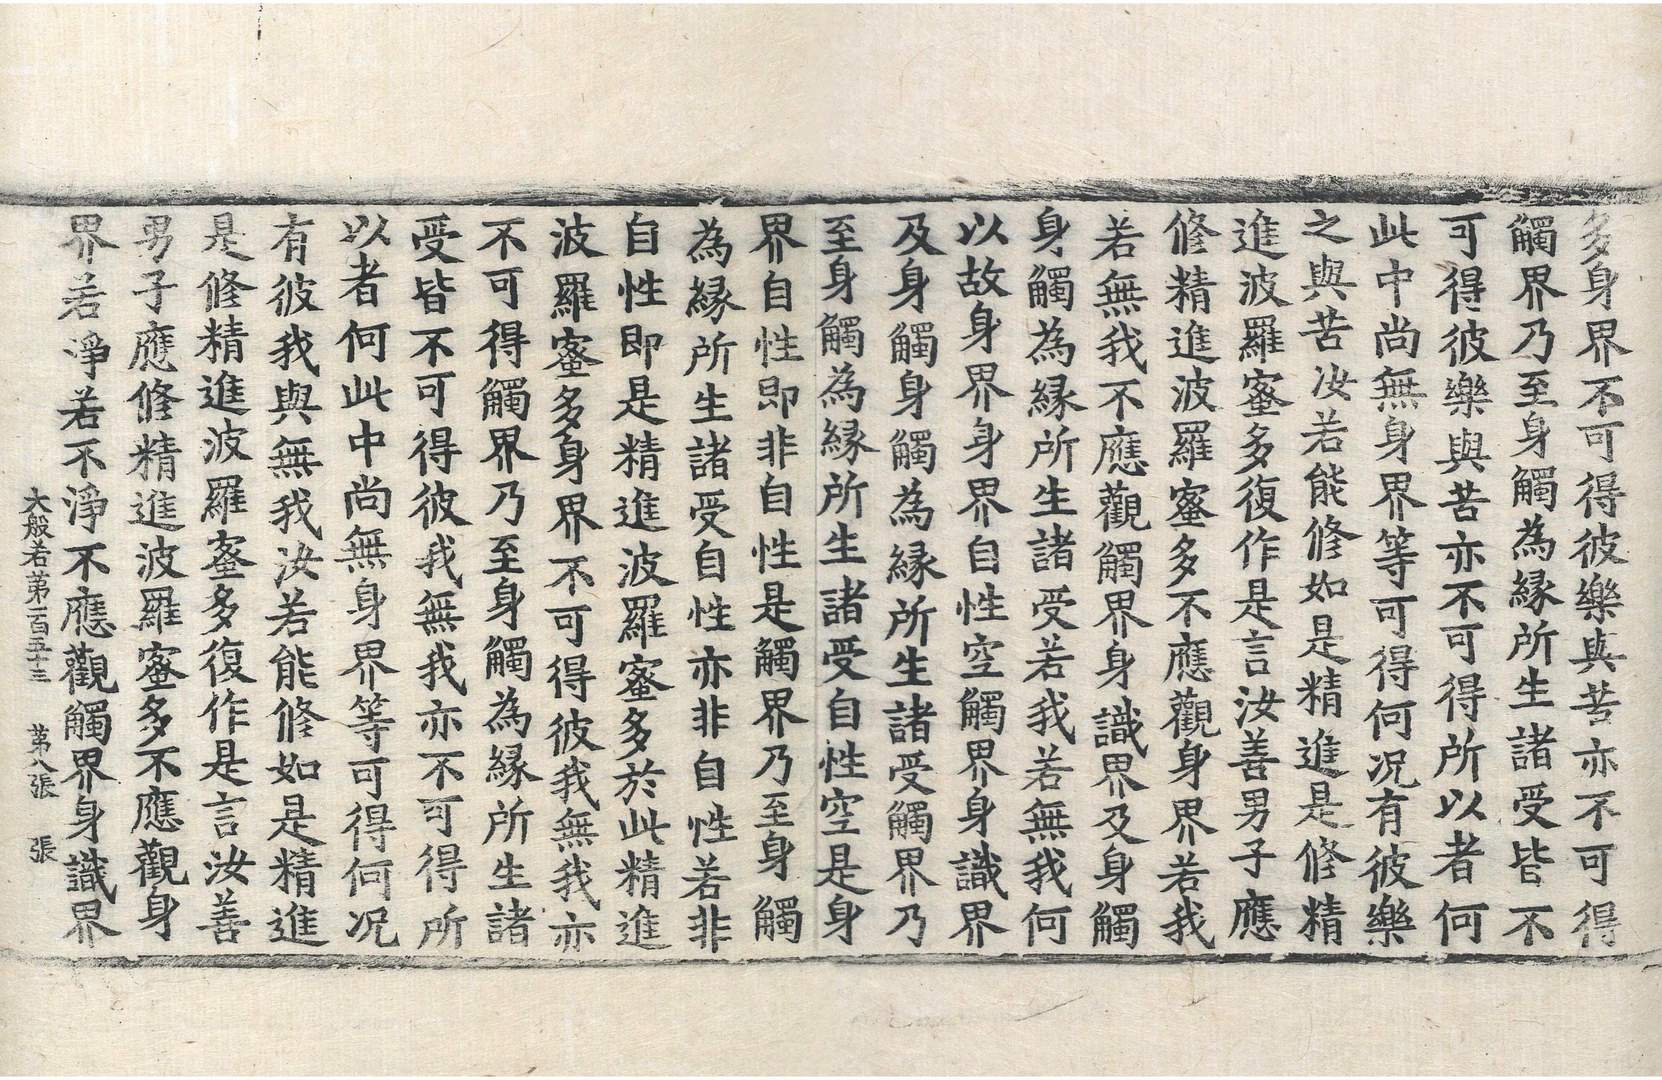 多身界不可得彼樂與苦亦不可得
觸界乃至身觸為緣所生諸受皆不
可得彼樂與苦亦不可得所以者何
此中尚無身界等可得何況有彼樂
之與苦汝若能修如是精進是修精
進波羅蜜多復作是言汝善男子應
修精進波羅蜜多不應觀身界若我
若無我不應觀觸界身識界及身觸
身觸為緣所生諸受若我若無我何
以故身界身界自性空觸界身識界
及身觸身觸為緣所生諸受觸界乃
至身觸為緣所生諸受自性空是身
界自性即非自性是觸界乃至身觸
為緣所生諸受自性亦非自性若非
自性即是精進波羅蜜多於此精進
波羅蜜多身界不可得彼我無我亦
不可得觸界乃至身觸為緣所生諸
受皆不可得彼我無我亦不可得所
以者何此中尚無身界等可得何況
有彼我與無我汝若能修如是精進
是修精進波羅蜜多復作是言汝善
男子應修精進波羅蜜多不應觀身
界若淨若不淨不應觀觸界身識界
大般若第一百五十三　第八張　張